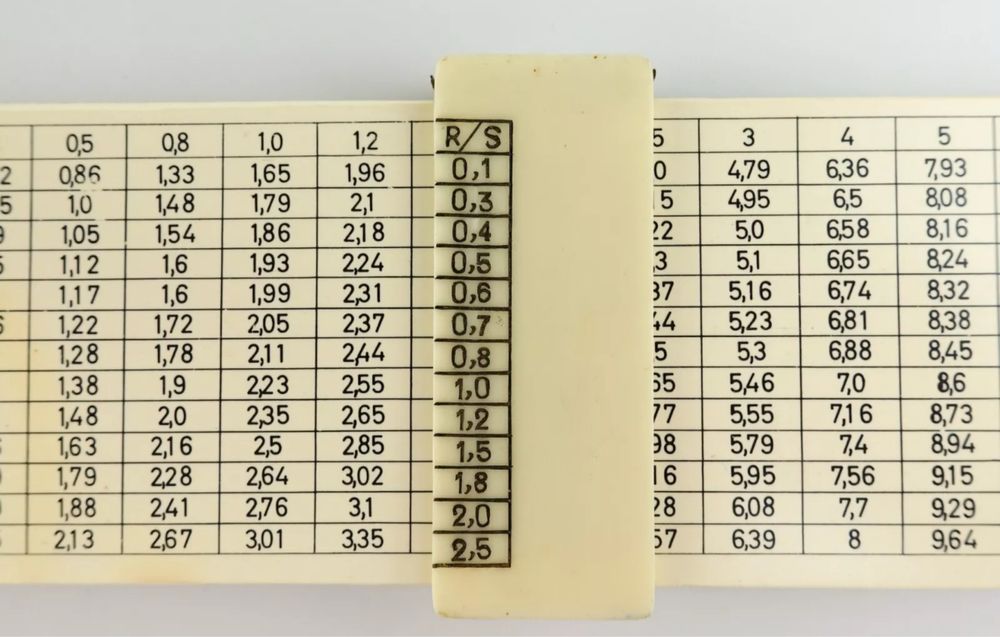 0,5 0,8 1,0 1,2 R/S 5 3 4 5
2 0,86 1,33 1,65 1,96 0,1 0 4,79 6,36 7,93
5 1,0 1,48 1,79 2,1 0,3 15 4,95 6,5 8,08
9 1,05 1,54 1,86 2,18 0,4 22 5,0 6,58 8,16
1,12 1,6 1,93 2,24 0,5 ,3 5,1 6,65 8,24
1,17 1,6 1,99 2,31 0,6 37 5,16 6,74 8,32
1,22 1,72 2,05 2,37 0,7 44 5,23 6,81 8,38
1,28 1,78 2,11 2,44 0,8 5 5,3 6,88 8,45
1,38 1,9 2,23 2,55 1,0 65 5,46 7,0 8,6
1,48 2,0 2,35 2,65 1,2 77 5,55 7,16 8,73
1,63 2,16 2,5 2,85 1,5 98 5,79 7,4 8,94
1,79 2,28 2,64 3,02 1,8 16 5,95 7,56 9,15
1,88 2,41 2,76 3,1 2,0 28 6,08 7,7 9,29
2,13 2,67 3,01 3,35 2,5 57 6,39 8 9,64